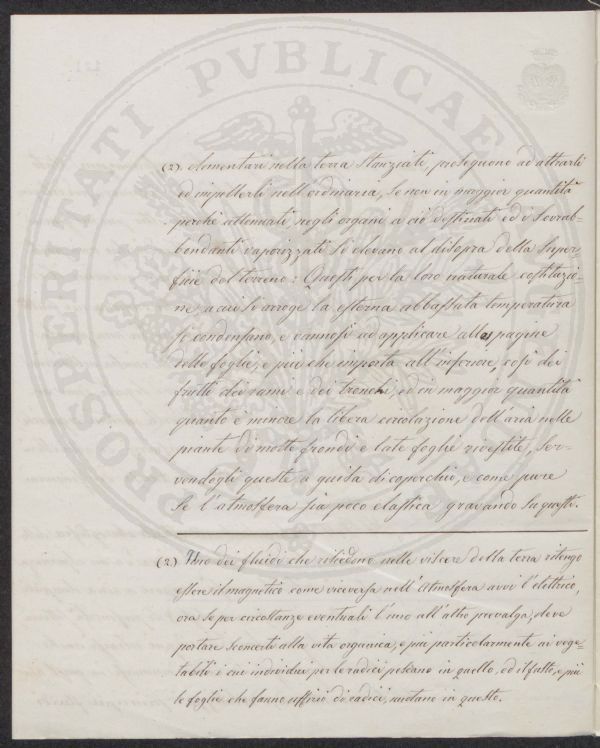 PROSPERITATI PVBLICAE
(2) elementari nella terra stanziati, proseguono ad attrarli
ed impellerli nell'ordinaria, se non in maggior quantità
perchè attenuati, negli organi a ciò destinati ed i sovrab-
bondanti vaporizzati si elevano al disopra della super-
ficie del terreno: Questi per la loro naturale costituzio-
ne, a cui si arroge la esterna abbassata temperatura
si condensano, e vannosi ad applicare alle pagine
delle foglie, e più che importa all'inferiore, così dei
frutti dei rami e dei tronchi, ed in maggior quantità
quanto è minore la libera circolazione dell'aria nelle
piante di molte frondi e late foglie rivestite, ser-
vendogli queste a guisa di coperchio, e come pure
se l'atmosfera sia poco elastica gravando su questi.
(2) Uno dei fluidi che risiedono nelle viscere della terra ritengo
essere il magnetico come viceversa nell'Atmosfera avvi l'elettrico,
ora se per circostanze eventuali l'uno all'altro prevalga, deve
portare sconcerti alla vita organica, e più particolarmente ai vege-
tabili i cui individui per le radici pescano in quello, ed il fusto, e più
le foglie che fanno uffizio di radici, nuotano in questo.